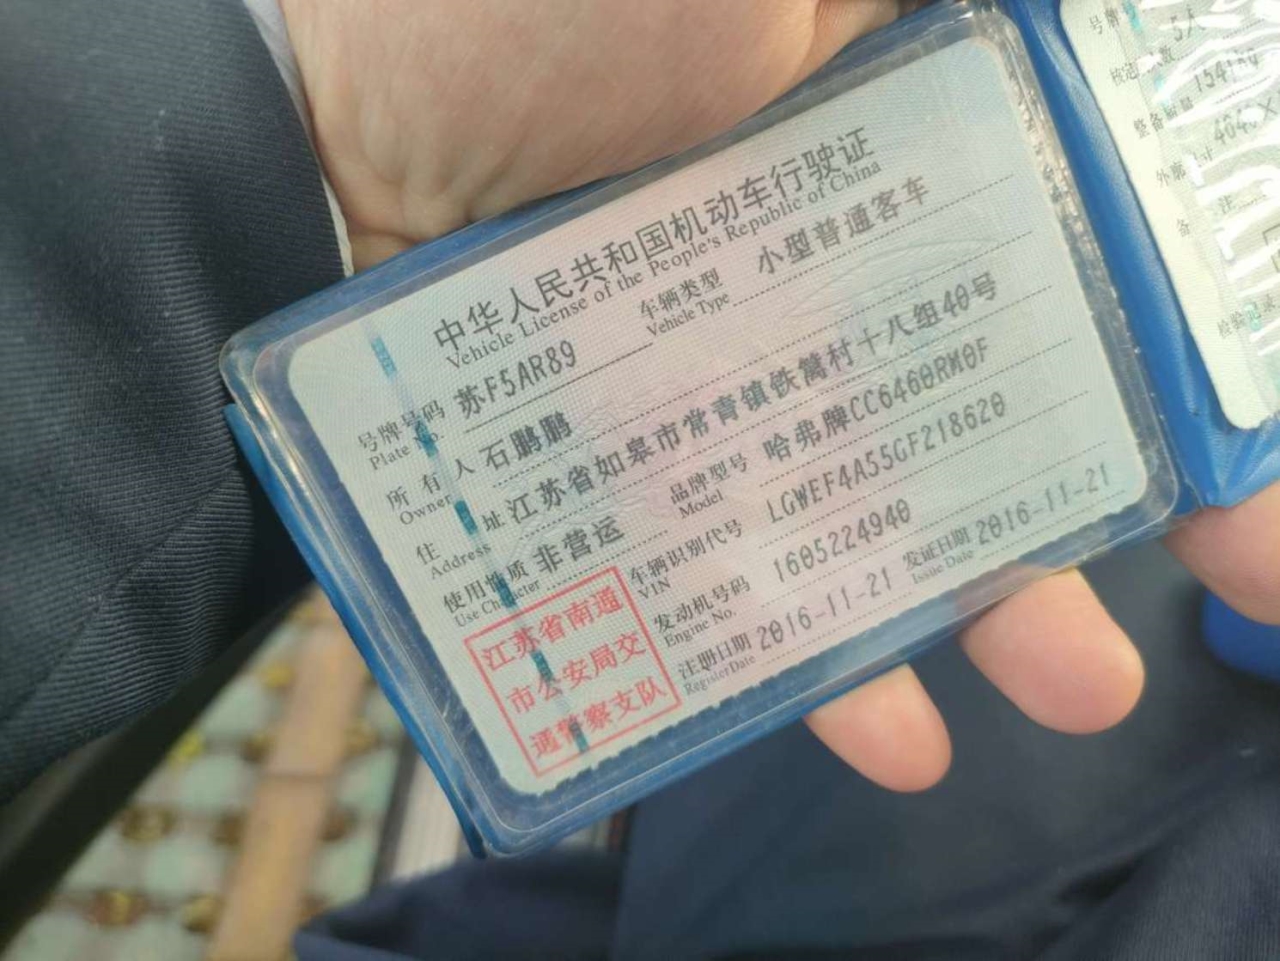 中华人民共和国机动车行驶证
Vehicle License of the People's Republic of China
号牌号码 苏F5AR89 车辆类型 小型普通客车
Plate No. Vehicle Type
所有人 石鹏鹏
Owner
住址 江苏省如皋市常青镇铁篱村十八组40号
Address
使用性质 非营运 品牌型号 哈弗牌CC6460RM0F
Use Character Model
车辆识别代号 LGWEF4A55GF218620
VIN
发动机号码 1605224940
Engine No.
注册日期 2016-11-21 发证日期 2016-11-21
Register Date Issue Date
江苏省南通
市公安局交
通警察支队
号牌
5人
整备质量
外廓
备注